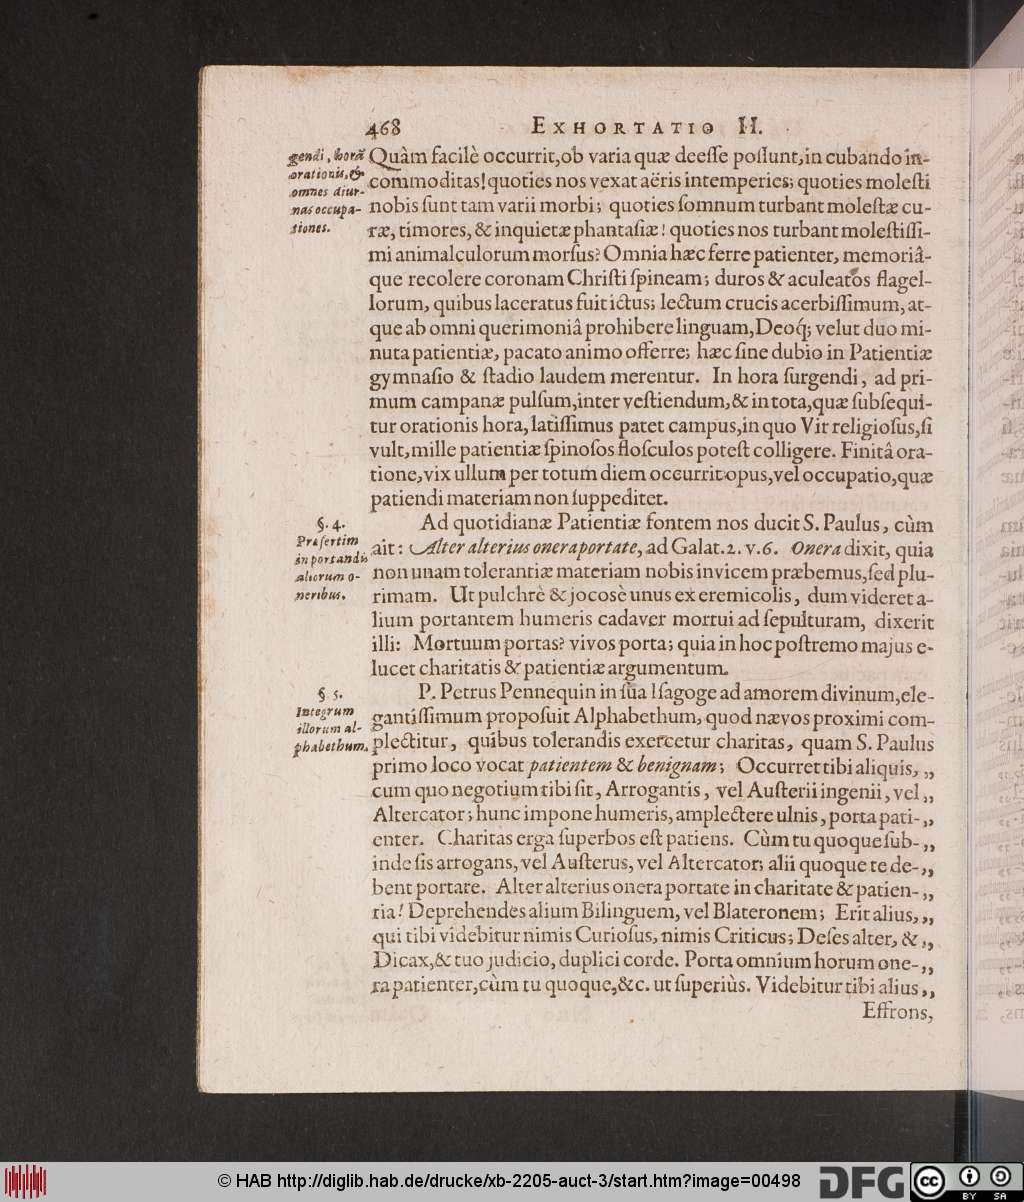 468 EXHORTATIO II.
gendi, horâ
orationis, &
omnes diur-
nas occupa-
tiones.
Quàm facilè occurrit, ob varia quæ deeſſe poſſunt, in cubando in-
commoditas! quoties nos vexat aëris intemperies; quoties moleſti
nobis ſunt tam varii morbi; quoties ſomnum turbant moleſtæ cu-
ræ, timores, & inquietæ phantaſiæ! quoties nos turbant moleſtiſſi-
mi animalculorum morſus? Omnia hæc ferre patienter, memoriâ-
que recolere coronam Chriſti ſpineam; duros & aculeatos flagel-
lorum, quibus laceratus fuit ictus; lectum crucis acerbiſſimum, at-
que ab omni querimoniâ prohibere linguam, Deoq́; velut duo mi-
nuta patientiæ, pacato animo offerre; hæc ſine dubio in Patientiæ
gymnaſio & ſtadio laudem merentur. In hora ſurgendi, ad pri-
mum campanæ pulſum, inter veſtiendum, & in tota, quæ ſubſequi-
tur orationis hora, latiſſimus patet campus, in quo Vir religioſus, ſi
vult, mille patientiæ ſpinoſos floſculos poteſt colligere. Finitâ ora-
tione, vix ullum per totum diem occurrit opus, vel occupatio, quæ
patiendi materiam non ſuppeditet.
§. 4.
Præſertim
in portandis
aliorum o-
neribus.
Ad quotidianæ Patientiæ fontem nos ducit S. Paulus, cùm
ait: Alter alterius onera portate, ad Galat. 2. v. 6. Onera dixit, quia
non unam tolerantiæ materiam nobis invicem præbemus, ſed plu-
rimam. Ut pulchrè & jocosè unus ex eremicolis, dum videret a-
lium portantem humeris cadaver mortui ad ſepulturam, dixerit
illi: Mortuum portas? vivos porta; quia in hoc poſtremo majus e-
lucet charitatis & patientiæ argumentum.
§ 5.
Integrum
illorum al-
phabethum.
P. Petrus Pennequin in ſua Iſagoge ad amorem divinum, ele-
gantiſſimum propoſuit Alphabethum, quod nævos proximi com-
plectitur, quibus tolerandis exercetur charitas, quam S. Paulus
primo loco vocat patientem & benignam; Occurret tibi aliquis, „
cum quo negotium tibi ſit, Arrogantis, vel Auſterii ingenii, vel „
Altercator; hunc impone humeris, amplectere ulnis, porta pati- „
enter. Charitas erga ſuperbos eſt patiens. Cùm tu quoque ſub- „
inde ſis arrogans, vel Auſterus, vel Altercator; alii quoque te de- „
bent portare. Alter alterius onera portate in charitate & patien- „
tia! Deprehendes alium Bilinguem, vel Blateronem; Erit alius, „
qui tibi videbitur nimis Curioſus, nimis Criticus; Deſes alter, & „
Dicax, & tuo judicio, duplici corde. Porta omnium horum one- „
ra patienter, cùm tu quoque, &c. ut ſuperiùs. Videbitur tibi alius „
Effrons,
© HAB http://diglib.hab.de/drucke/xb-2205-auct-3/start.htm?image=00498
DFG
cc BY SA